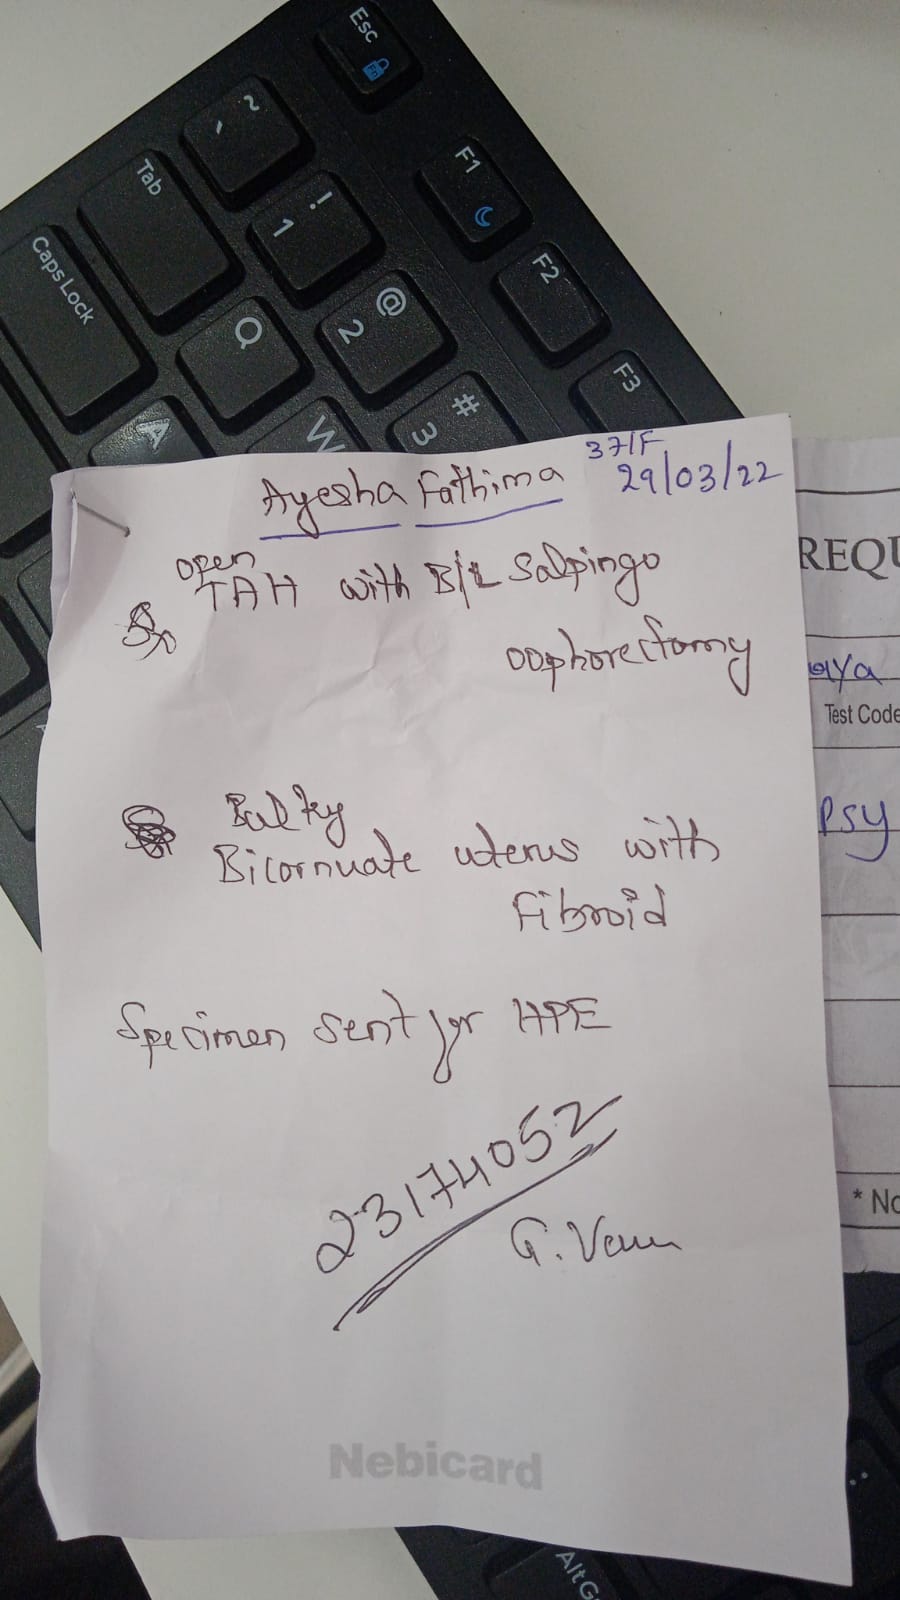 Esc
Fn
~
`
F1
Tab
!
1
F2
Caps Lock
@
2
Q
F3
#
3
W
A
37/F
Ayesha Fathima 29/03/22
open
TAH with B/L Salpingo
oophorectomy
Bulky
Bicornuate uterus with
Fibroid
Specimen sent for HPE
23174052
G.
Nebicard
REQU
aya
Test Code
Psy
* No
AltG